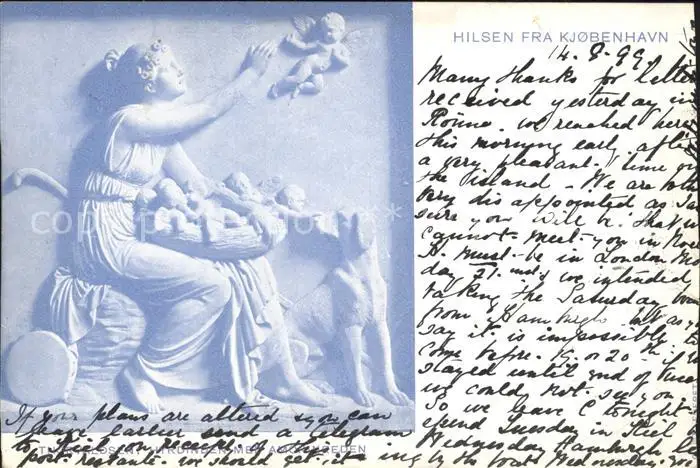 HILSEN FRA KJØBENHAVN
14. 9. 99
Many thanks for letter
received yesterday in
Rönne. we reached here
this morning early after
a very pleasant time on
the island - We are both
very disappointed as I am
sure you will be. that we
cannot meet you in
must be in London
day 21. we intended
taking the Saturday boat
from Hamburgh but as you
say it is impossible to
come before 19 or 20th if we
stayed until end of
we could not see you
So we leave C tonight
spend Tuesday in Kiel
Wednesday Hamburgh
ing by the boat Wednesday
If your plans are altered & you can
leave earlier send a telegram
to Kiel on receipt of this
post restante. we should get it